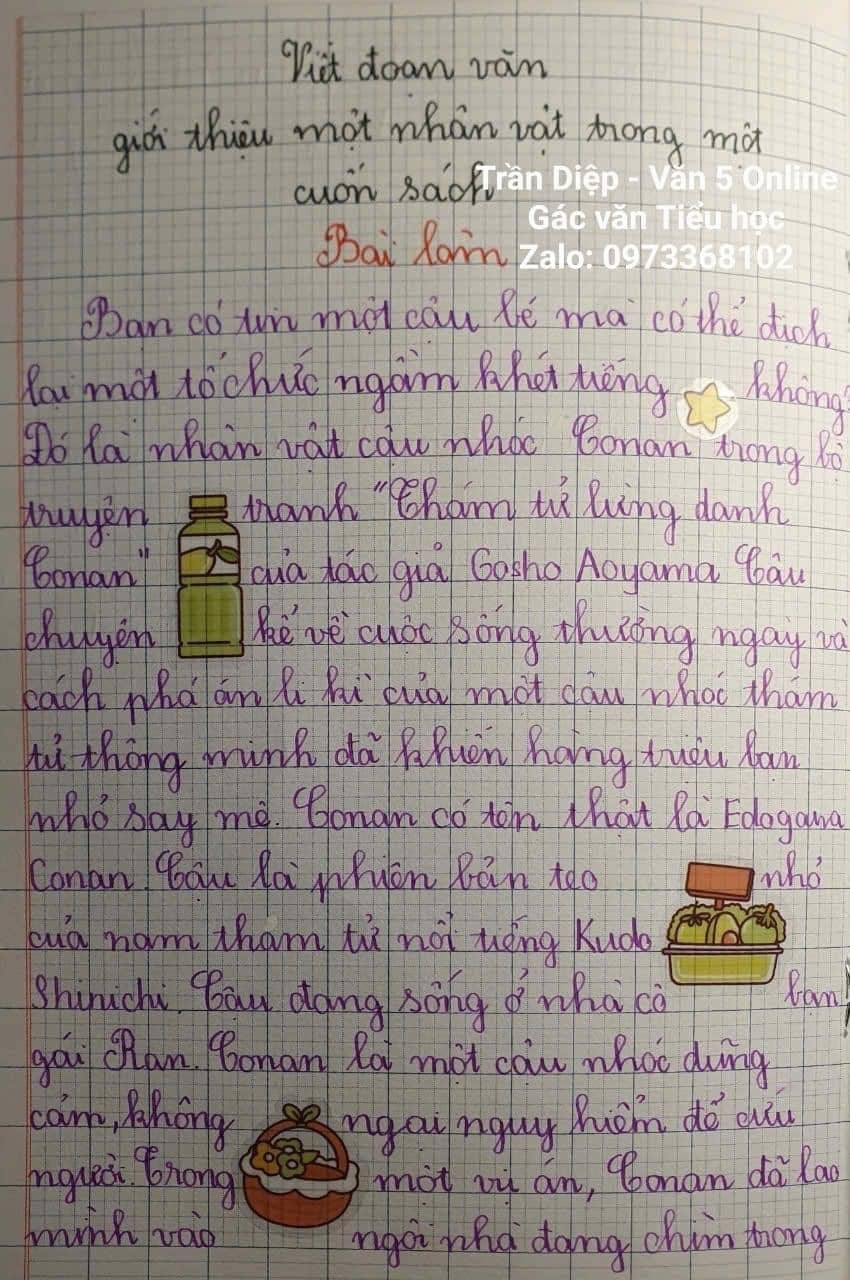 Viết đoạn văn
giới thiệu một nhân vật trong một
cuốn sách
Trần Diệp - Văn 5 Online
Gác văn Tiểu học
Bài làm
Zalo: 0973368102
Bạn có tin một cậu bé mà có thể địch
lại một tổ chức ngầm khét tiếng không?
Đó là nhân vật cậu nhóc Conan trong bộ
truyện tranh "Thám tử lừng danh
Conan" của tác giả Gosho Aoyama Câu
chuyện kể về cuộc sống thường ngày và
cách phá án li kì của một cậu nhóc thám
tử thông minh đã khiến hàng triệu bạn
nhỏ say mê. Conan có tên thật là Edogawa
Conan. Cậu là phiên bản teo nhỏ
của nam thám tử nổi tiếng Kudo
Shinichi. Cậu đang sống ở nhà cô bạn
gái Ran. Conan là một cậu nhóc dũng
cảm, không ngại nguy hiểm để cứu
người. Trong một vụ án, Conan đã lao
mình vào ngôi nhà đang chìm trong